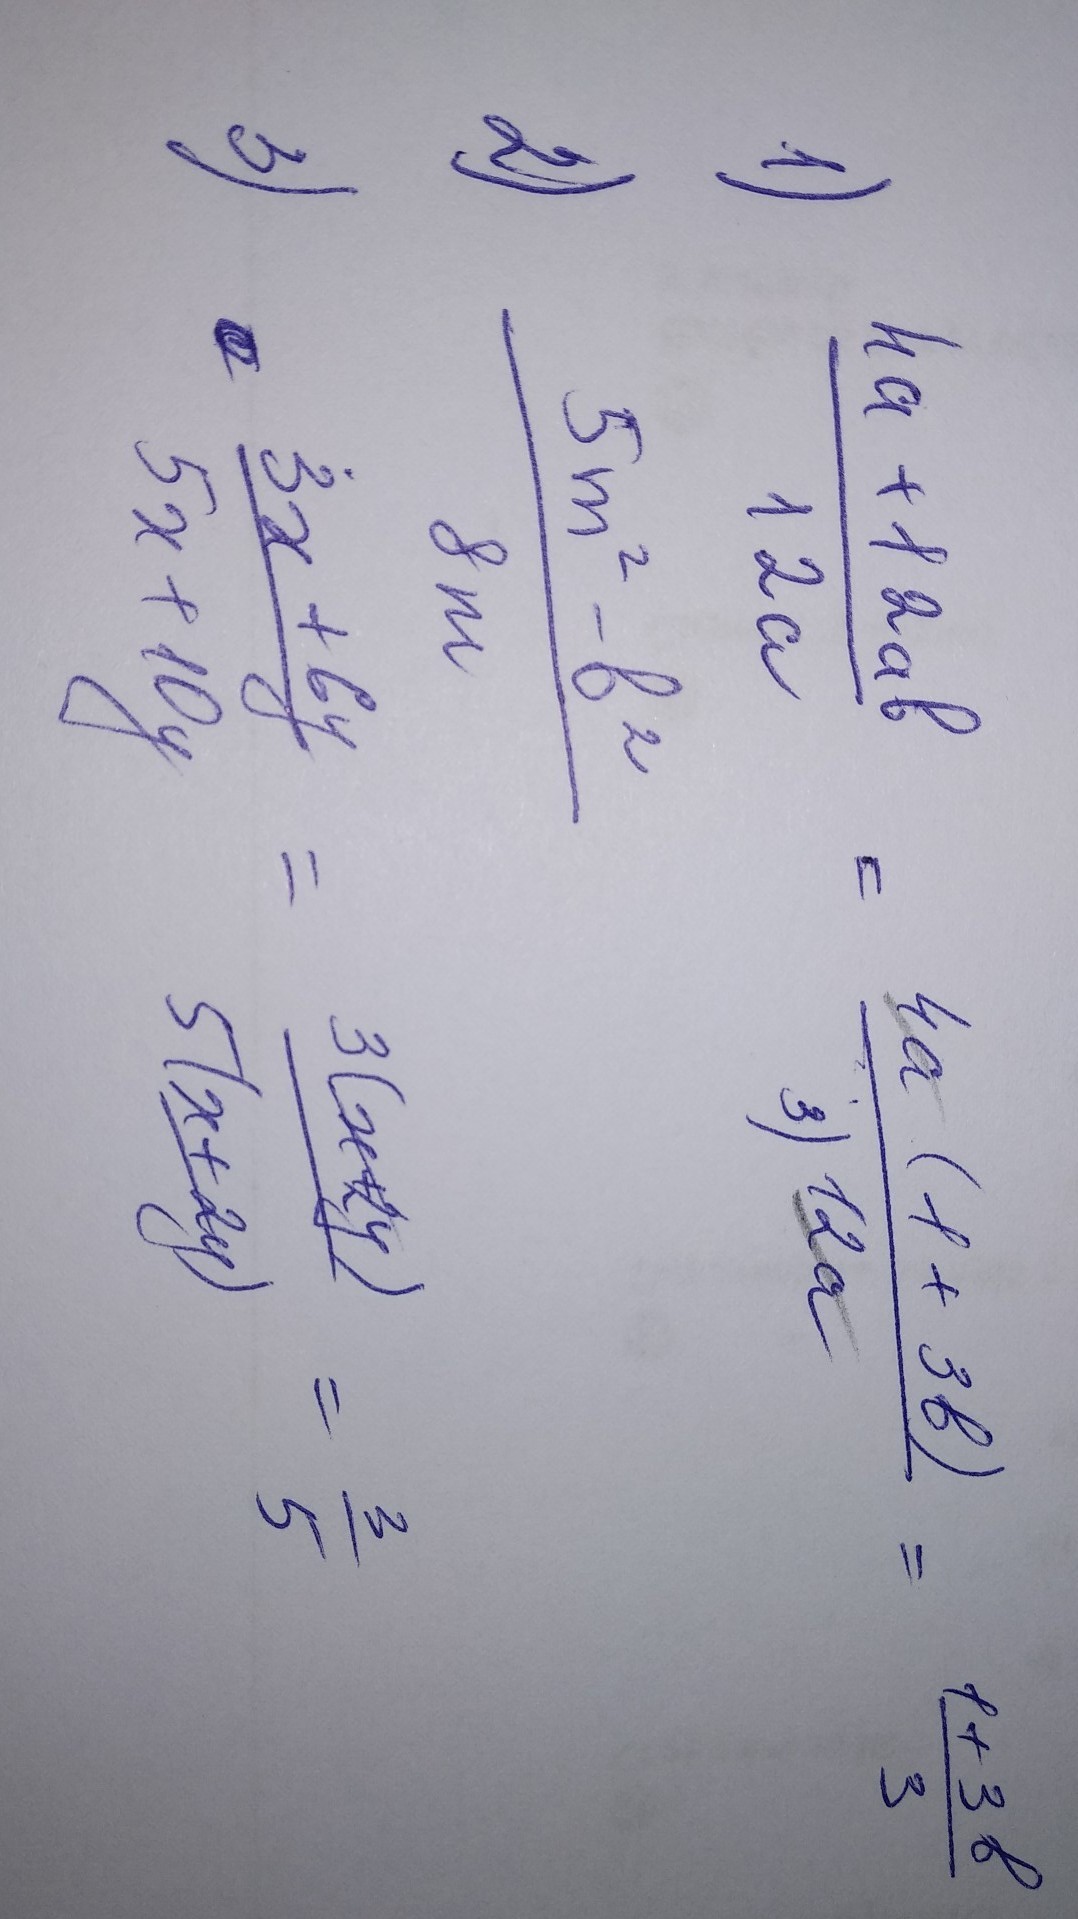 1) 4a + 12ab / 12a = 4a (1 + 3b) / 3) 12a = 1 + 3b / 3
2) 5m² - b² / 8m
3) 3x + 6y / 5x + 10y = 3(x+2y) / 5(x+2y) = 3 / 5